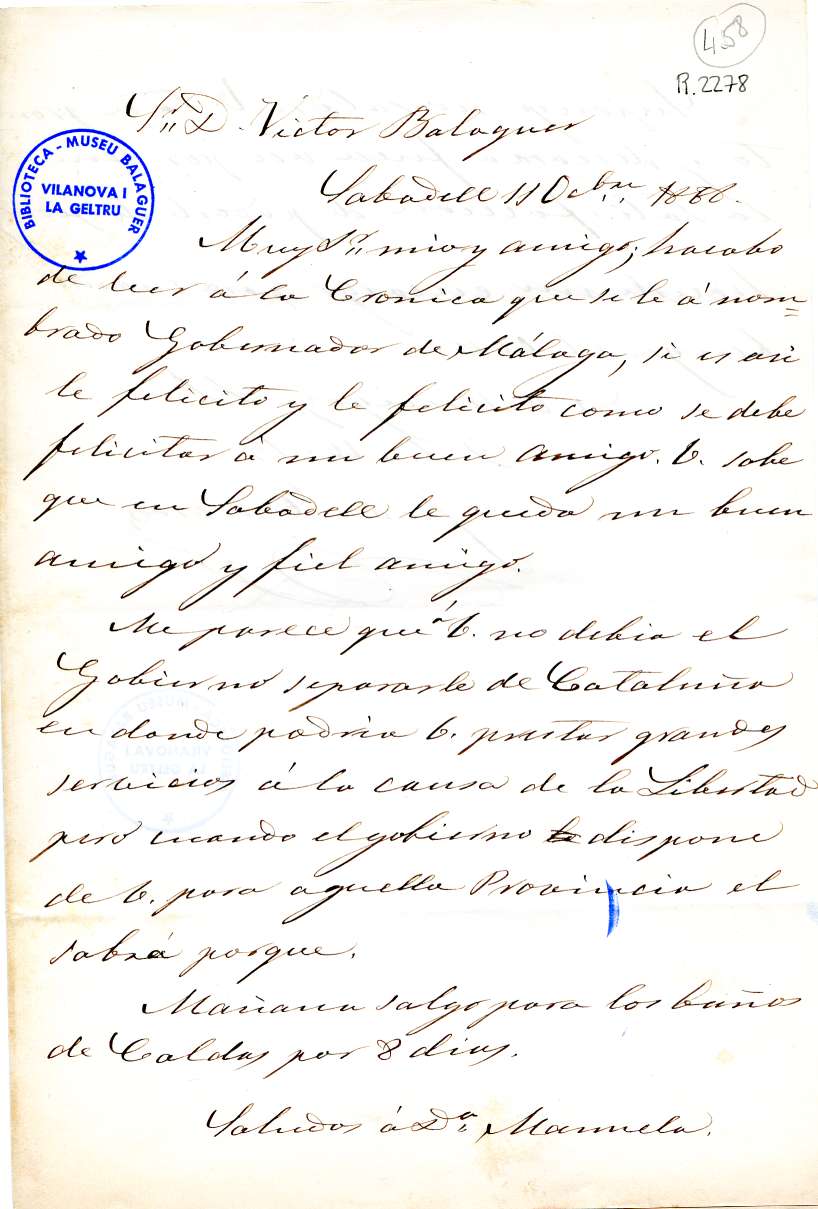 458
R.2278
Sr. D. Victor Balaguer
BIBLIOTECA - MUSEU BALAGUER
VILANOVA I
LA GELTRU
Sabadell 11 Ocbre 1868.
Muy Sr. mio y amigo; hacabo
de leer á la Cronica que se le á nom=
brado Gobernador de Málaga, si es asi
le felicito y le felicito como se debe
felicitar á un buen amigo. V. sabe
que en Sabadell le queda un buen
amigo y fiel amigo.
Me parece que á V. no debia el
Gobierno separarle de Cataluña
en donde podria V. prestar grandes
servicios á la causa de la Libertad
pero cuando el gobierno dispone
de V. para aquella Provincia el
sabrá porque.
Mañana salgo para los baños
de Caldas por 8 dias.
Saludos á Da. Manuela.